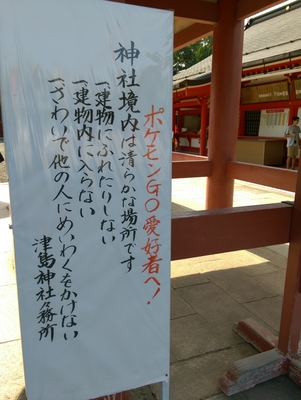 ポケモンGO愛好者へ!
神社境内は清らかな場所です
一建物にふれたりしない
一建物内に入らない
一ざわいで他の人にめいわくをかけない
津島神社々務所